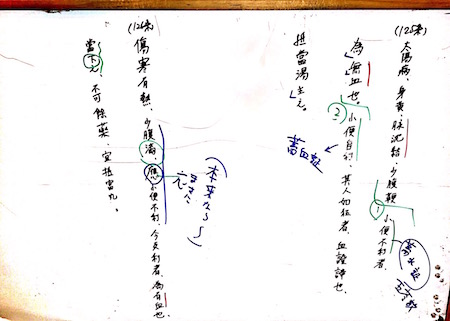 (125条)
太陽病、身黄、脉沈結、少腹鞕、小便不利者、
為無血也。小便自利、其人如狂者、血證諦也、
抵當湯主之。
①
蓄水証
五苓散
②
蓄血証
(126条)
傷寒有熱、少腹満、應小便不利、今反利者、為有血也、
當下之、不可餘藥、宜抵當丸。
(本来なら〜